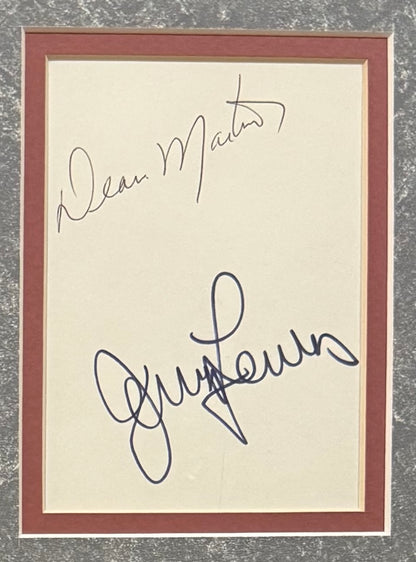 Dean Martin
Jerry Lewis